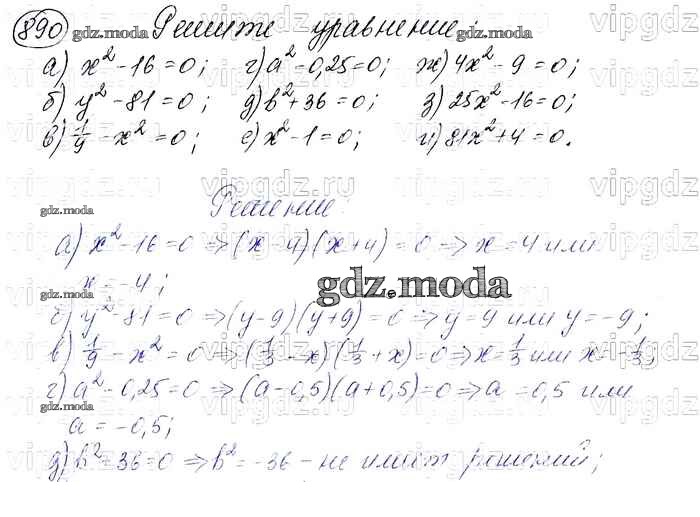 890 gdz.moda Решите уравнение: vipgdz.ru
а) x² - 16 = 0; г) a² - 0,25 = 0; ж) 4x² - 9 = 0;
б) y² - 81 = 0; д) b² + 36 = 0; з) 25x² - 16 = 0;
в) 1/9 - x² = 0; е) x² - 1 = 0; и) 81x² + 4 = 0.
gdz.moda Решение:
а) x² - 16 = 0 ⇒ (x - 4)(x + 4) = 0 ⇒ x = 4 или
x = -4;
gdz.moda
б) y² - 81 = 0 ⇒ (y - 9)(y + 9) = 0 ⇒ y = 9 или y = -9;
в) 1/9 - x² = 0 ⇒ (1/3 - x)(1/3 + x) = 0 ⇒ x = 1/3 или x = -1/3;
г) a² - 0,25 = 0 ⇒ (a - 0,5)(a + 0,5) = 0 ⇒ a = 0,5 или
gdz.moda
a = -0,5;
д) b² + 36 = 0 ⇒ b² = -36 - не имеет решений;